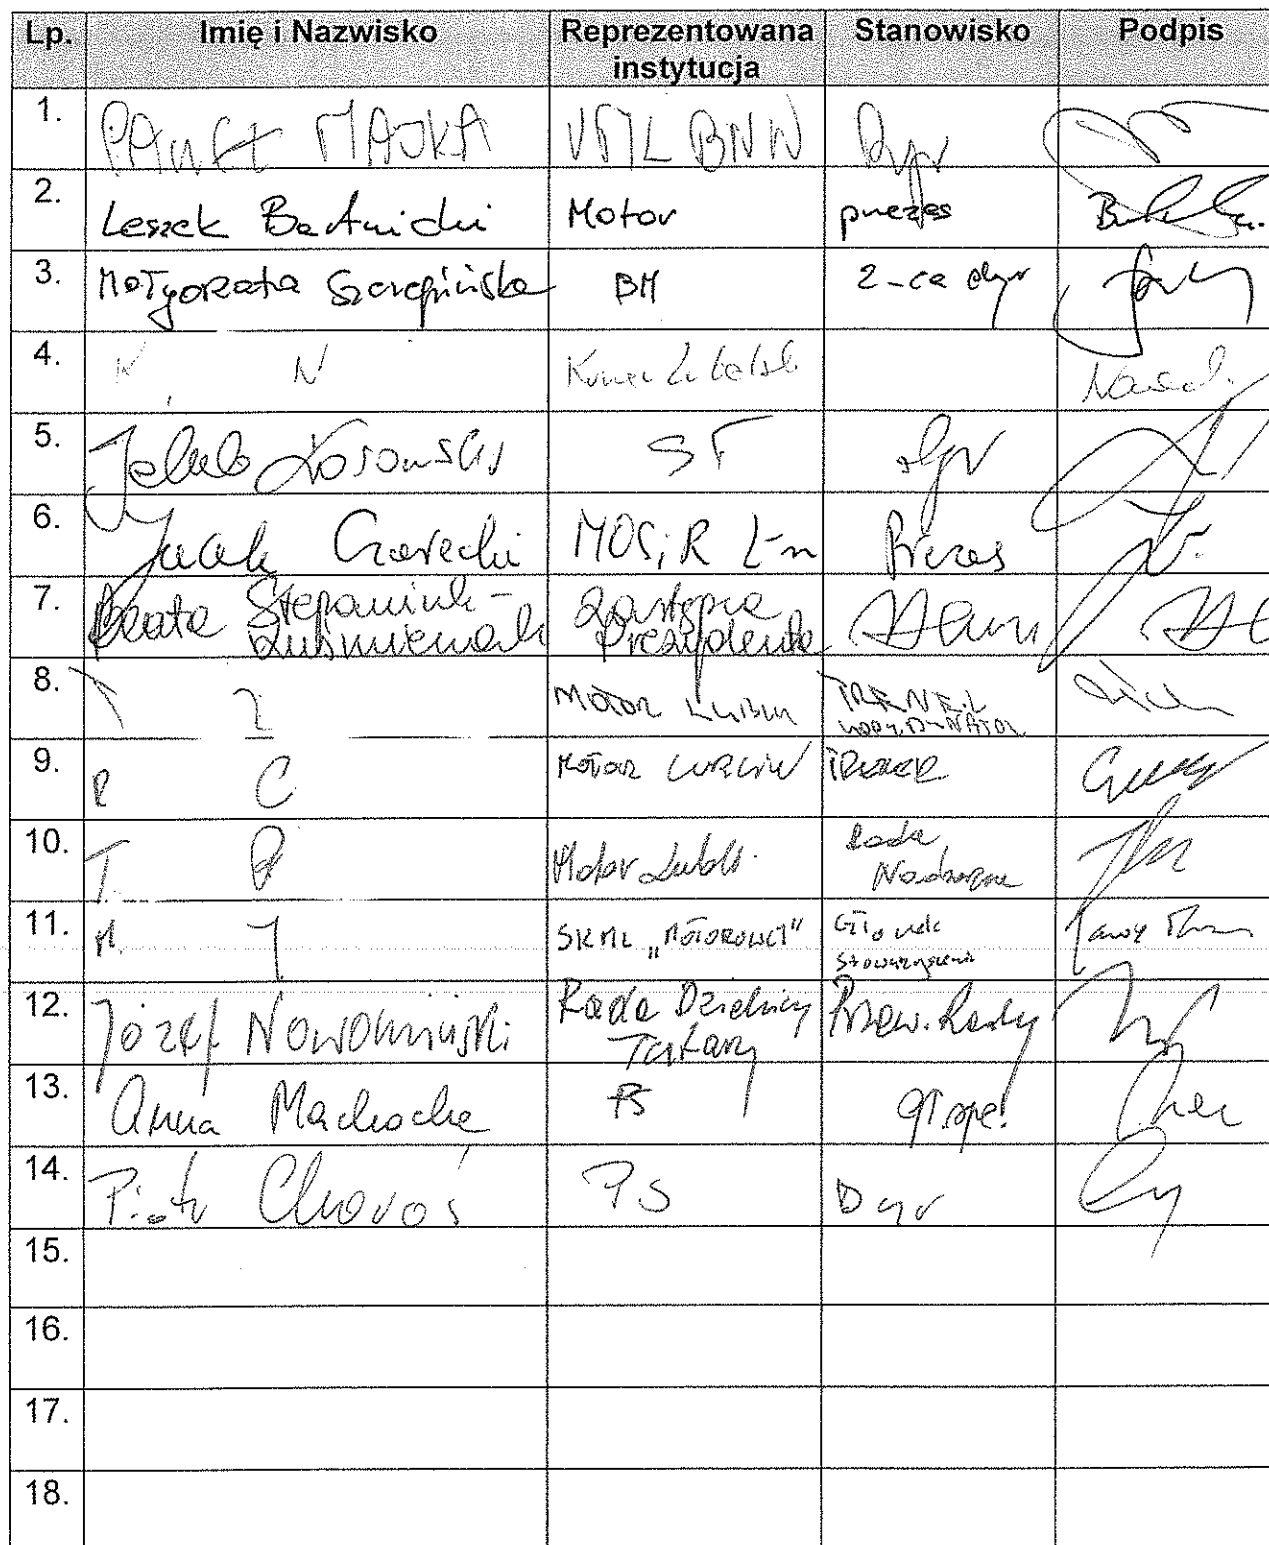 Lp. Imię i Nazwisko Reprezentowana instytucja Stanowisko Podpis
1. PAWEŁ MAJKA UML BNW Dyr
2. Leszek Bartnicki Motor prezes
3. Małgorzata Szczepińska BM Z-ca dyr
4. K. N
5. Jakub Kosowski ST dyr
6. Jacek Czarecki MOSiR L-n Prezes
7. Beata Stepaniuk- Zastępca
Kuśmierzak Prezydenta
8. Z MOTOR LUBLIN TRENER
KOORDYNATOR
9. R C MOTOR LUBLIN TRENER
10. T. Motor Rada
Nadzorcza
11. M. J SKML „MOTOROWCY" Członek
Stowarzyszenia
12. Józef Nowomiński Rada Dzielnicy Przew. Rady
Tatary
13. Anna Machocka PS gł. spec.
14. Piotr Choroś P.S Dyr
15.
16.
17.
18.